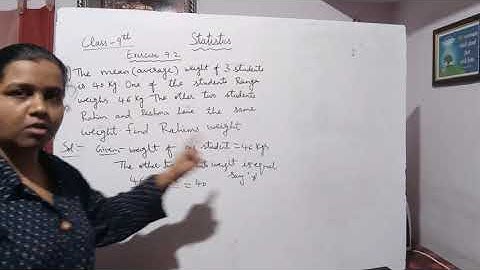 Class-9th Statistics
Exercise 9.2
The mean (average) weight of 3 students
is 40 kg. One of the students Ranga
weighs 46 kg. The other two students
Rahim and Reshma have the same
weight find Rahims weight
Sol- Given- weight of student = 46 kgs
The other weight is equal
say 'x'
= 40